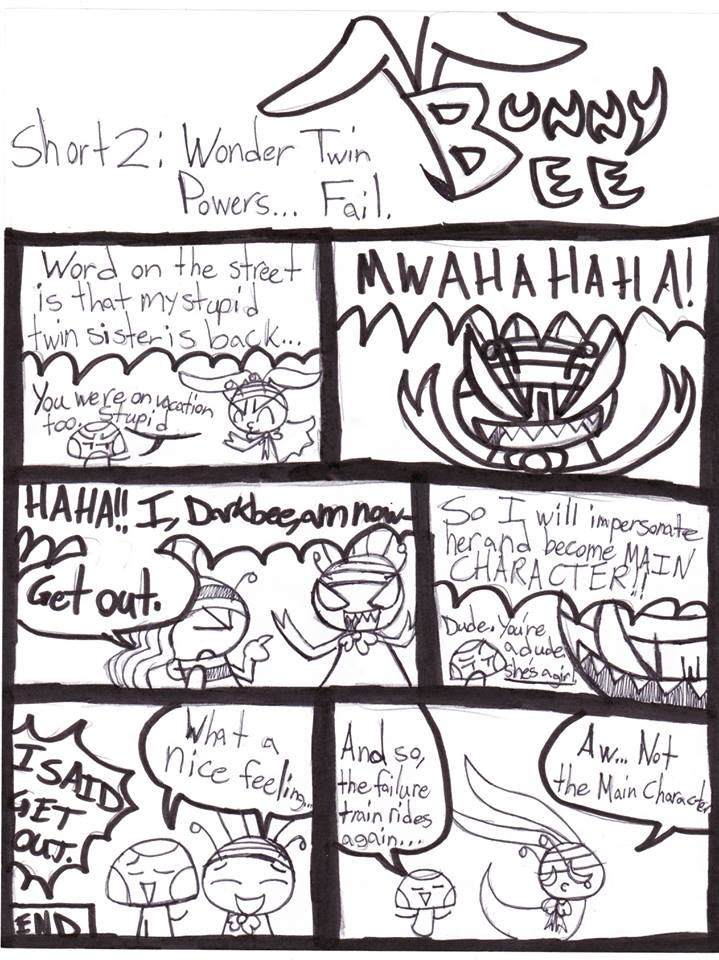 BUNNY
BEE
Short 2: Wonder Twin
Powers... Fail.
MWAHAHAHA!
Word on the street
is that my stupid
twin sister is back...
You were on vacation
too. Stupid.
So I will impersonate
her and become MAIN
CHARACTER!!
Dude. You're
a dude.
She's a girl.
HAHA!! I, Darkbee, am now-
Get out.
Aw... Not
the Main Character
And so,
the failure
train rides
again...
What a
nice feeling...
I SAID
GET
OUT.
END